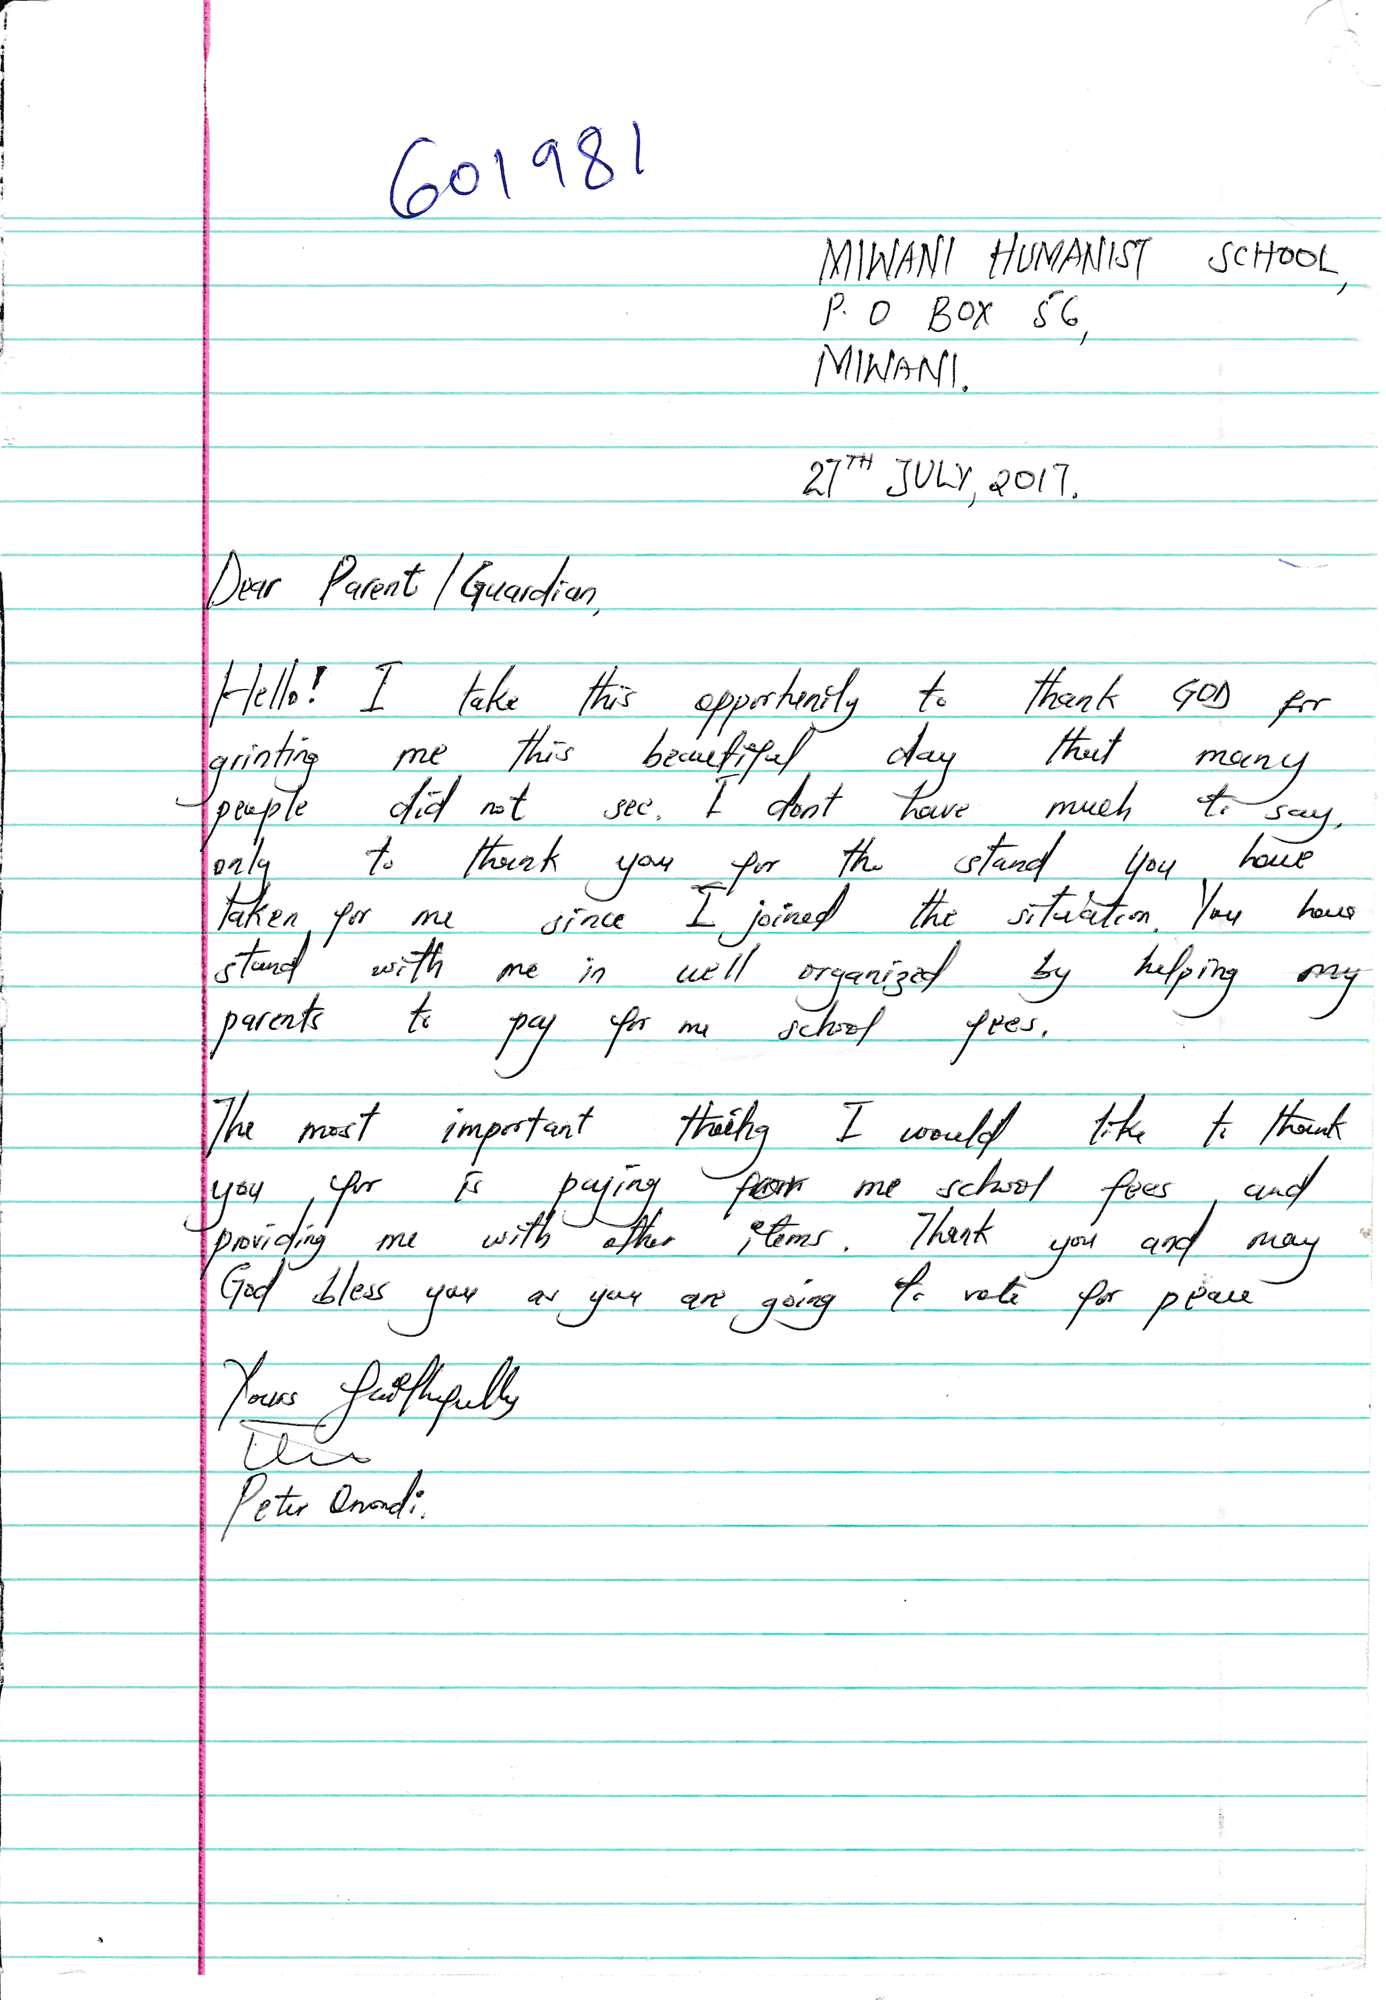 601981
MIWANI HUMANIST SCHOOL,
P. O BOX 56,
MIWANI.
27TH JULY, 2017.
Dear Parent / Guardian,
Hello! I take this opportunity to thank GOD for
grinting me this beautiful day that many
people did not see. I dont have much to say,
only to thank you for the stand you have
taken for me since I joined the situation. You have
stand with me in well organized by helping my
parents to pay for me school fees.
The most important thing I would like to thank
you for is paying for me school fees and
providing me with other items. Thank you and may
God bless you as you are going to vote for peace
Yours faithfully
Peter